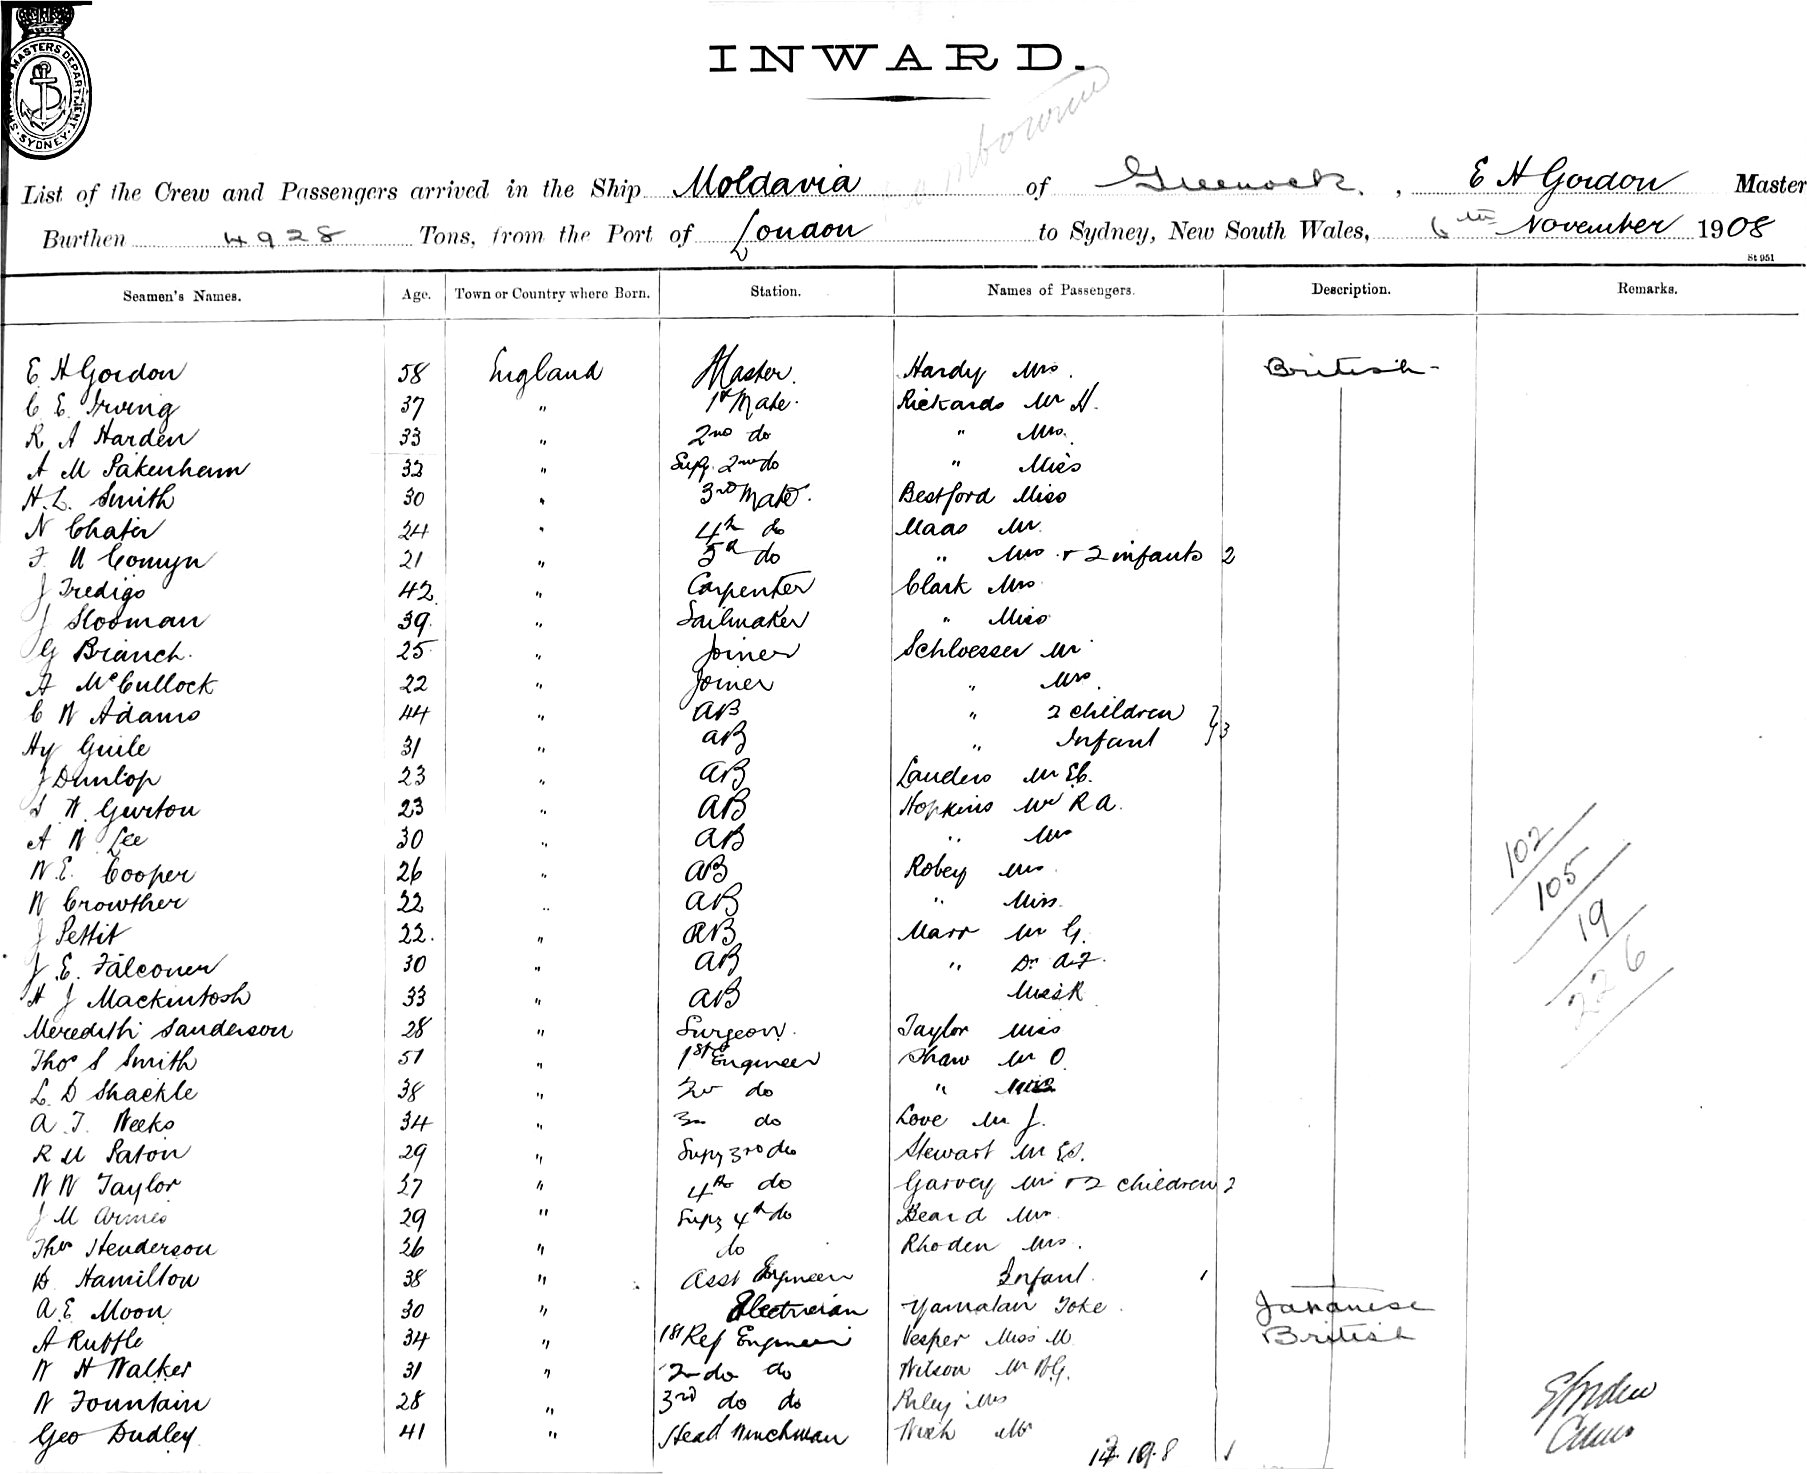 SHIPPING MASTERS DEPARTMENT. SYDNEY
INWARD.
List of the Crew and Passengers arrived in the Ship Moldavia of Greenock, E H Gordon Master
Burthen 4928 Tons, from the Port of London to Sydney, New South Wales, 6th November 1908
St 951
Seamen's Names. Age. Town or Country where Born. Station. Names of Passengers. Description. Remarks.
E H Gordon 58 England Master. Hardy Mrs. British
C E. Irving 37 " 1st Mate. Rickards Mr H.
R A Harden 33 " 2nd do " Mrs.
A M Pakenham 32 " Supy. 2nd do " Miss
H. L. Smith 30 " 3rd Mate. Bestford Miss
N Chater 24 " 4th do Maas Mr.
F. U Comyn 21 " 5th do " Mrs + 2 infants 2
J Tredigo 42 " Carpenter Clark Mrs
J Slooman 39. " Sailmaker " Miss
G Branch. 25 " Joiner Schloesser Mr
A McCullock 22 " Joiner " Mrs.
C W Adams 44 " AB " 2 children } 3
Hy Guile 31 " AB " Infant
J Dunlop 23 " AB Landers Mr E.C.
S W. Gurton 23 " AB Hopkins Mr R A.
A W Lee 30 " AB " Mrs
W. E. Cooper 26 " AB Robey Mrs 102
W Crowther 22 " AB " Miss. 105
J Pettit 22. " AB Marr Mr G. 19
J. E. Falconer 30 " AB " Dr A.F. 226
H J Mackintosh 33 " AB Miss R
Meredith Sanderson 28 " Surgeon. Taylor Miss
Thos S Smith 51 " 1st Engineer Shaw Mr O.
L. D Shackle 38 " 2nd do "
A. T. Weeks 34 " 3rd do Love Mr J.
R M Paton 29 " Supy 3rd do Stewart Mr E.S.
W W Taylor 27 " 4th do Garvey Mrs + 2 children 2
J M Armes 29 " Supy 4th do Beard Mrs.
Thos Henderson 26 " do Rhoden Mrs.
D. Hamilton 38 " Asst Engineer Infant. 1
A. E Moon 30 " Electrician Yamatan Toke. Japanese
A Ruffle 34 " 1st Ref Engineer Vesper Miss M British
W H Walker 31 " 2nd do do Wilson Mr W.G.
W Fountain 28 " 3rd do do Riley Mrs
Geo Dudley 41 " Head Winchman